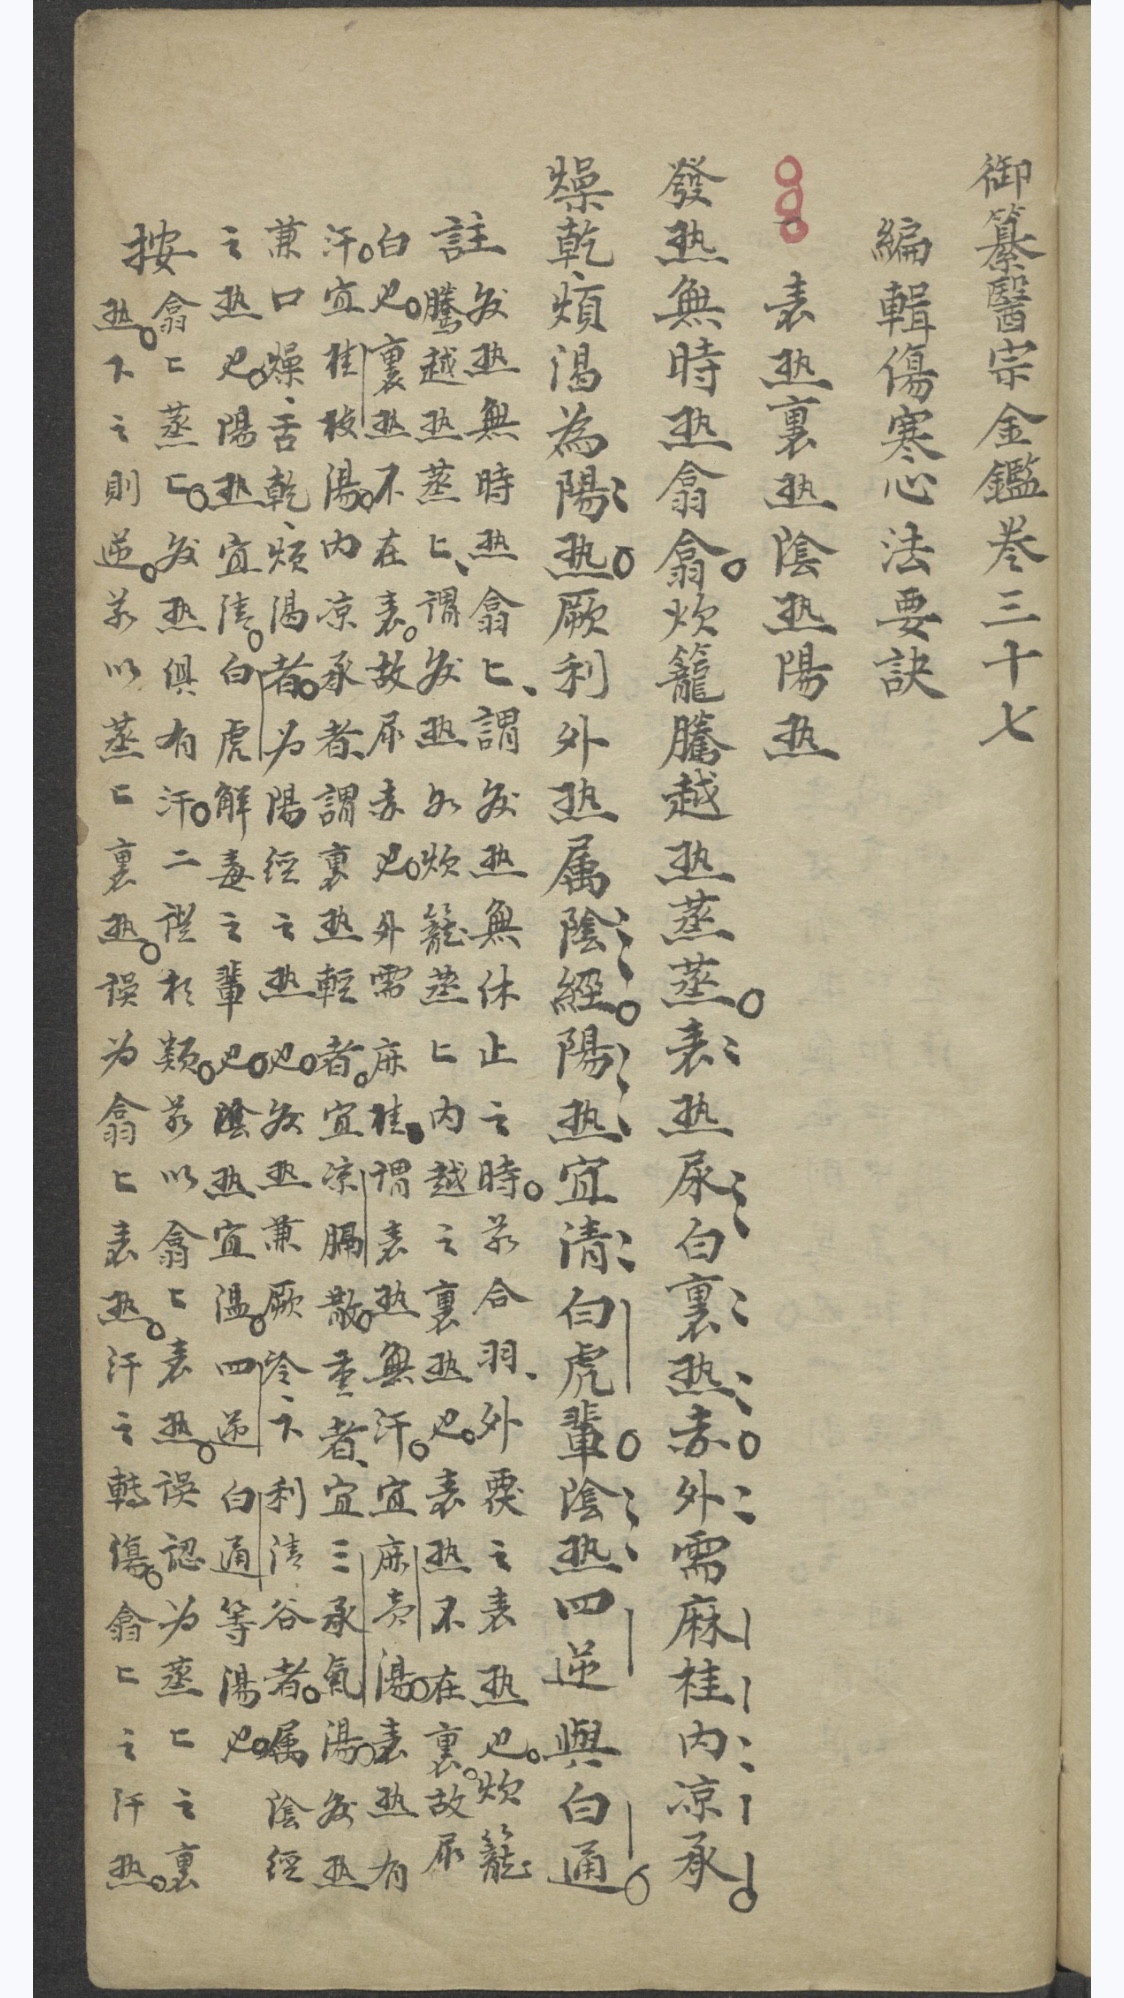 御纂醫宗金鑑卷三十七
編輯傷寒心法要訣
表热裏热陰热陽热
發热無時热翕翕。炊籠騰越热蒸蒸。表热尿白裏热赤。外需麻桂內凉承。
燥乾煩渴為陽热。厥利外热属陰經。陽热宜清白虎輩。陰热四逆與白通。
註
发热無時热翕〻、謂发热無休止之時。若合羽、外覆之表热也。炊籠
騰越热蒸〻、謂发热如炊籠蒸〻內越之裏热也。表热不在裏。故尿
白也。裏热不在表。故尿赤也。外需麻桂、謂表热無汗。宜麻黄湯。表热有
汗。宜桂枝湯。內凉承者、謂裏热輕者。宜凉膈散。重者、宜三承氣湯。发热
兼口燥、舌乾、煩渴者。为陽經之热也。发热兼厥冷、下利清谷者。属陰經
之热也。陽热宜清。白虎解毒之輩也。陰热宜温。四逆白通等湯也。
按
翕〻蒸〻。发热俱有汗。二證相類。若以翕〻表热。误認为蒸〻之裏
热。下之則逆。若以蒸〻裏热。误为翕〻表热。汗之轉傷。翕〻之汗热。